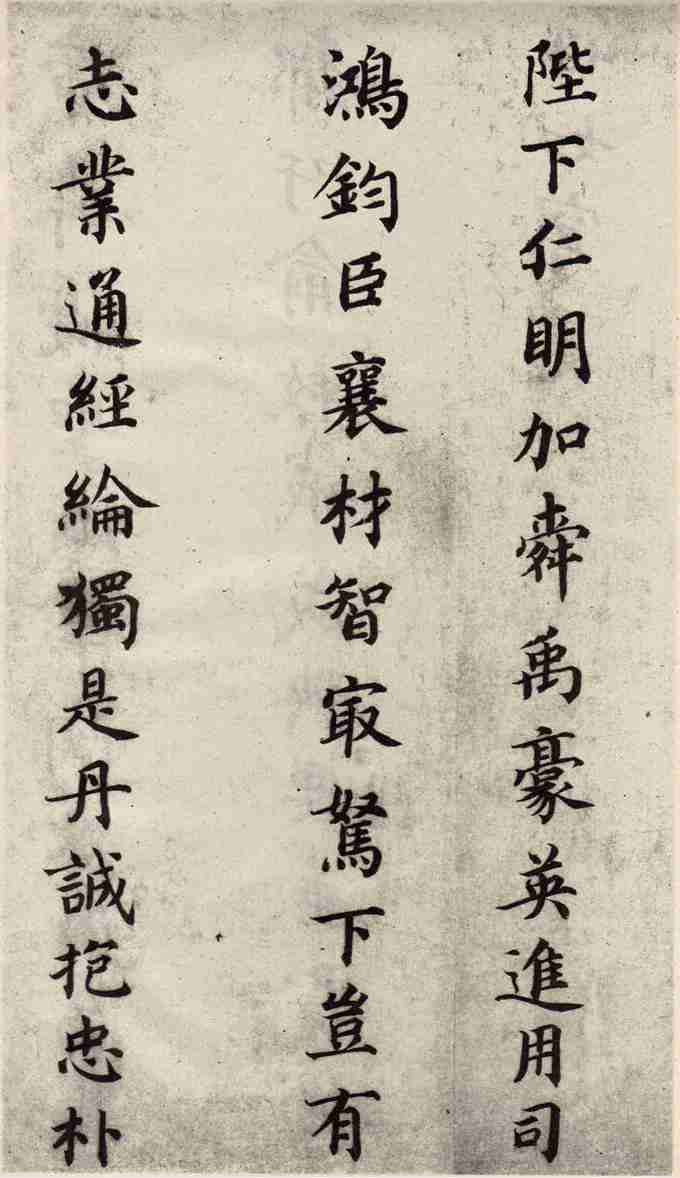 陛下仁明加舜禹豪英進用司
鴻鈞臣襄材智冣駑下豈有
志業通經綸獨是丹誠抱忠朴